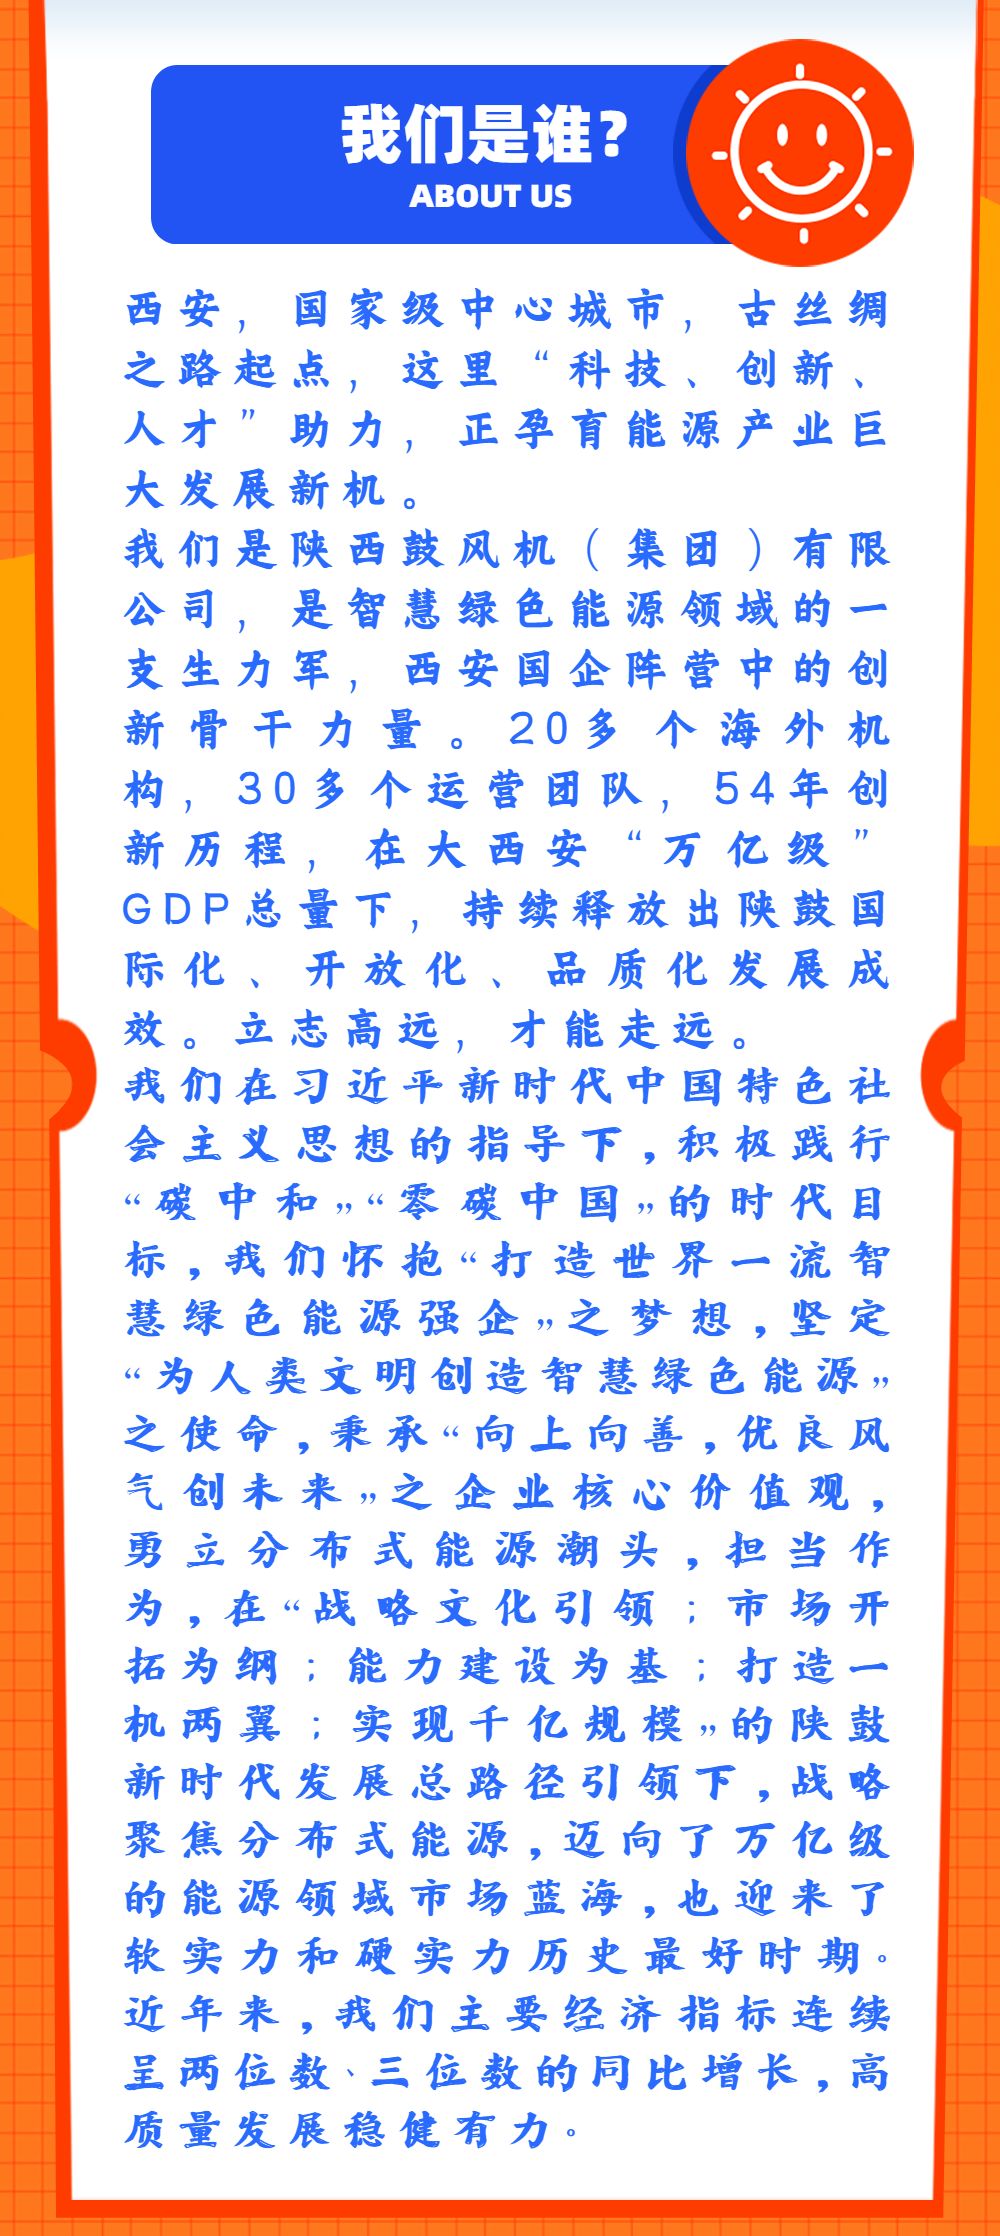 我们是谁?
ABOUT US
西安，国家级中心城市，古丝绸
之路起点，这里“科技、创新、
人才”助力，正孕育能源产业巨
大发展新机。
我们是陕西鼓风机（集团）有限
公司，是智慧绿色能源领域的一
支生力军，西安国企阵营中的创
新骨干力量。20多个海外机
构，30多个运营团队，54年创
新历程，在大西安“万亿级”
GDP总量下，持续释放出陕鼓国
际化、开放化、品质化发展成
效。立志高远，才能走远。
我们在习近平新时代中国特色社
会主义思想的指导下，积极践行
“碳中和”“零碳中国”的时代目
标，我们怀抱“打造世界一流智
慧绿色能源强企”之梦想，坚定
“为人类文明创造智慧绿色能源”
之使命，秉承“向上向善，优良风
气创未来”之企业核心价值观，
勇立分布式能源潮头，担当作
为，在“战略文化引领；市场开
拓为纲；能力建设为基；打造一
机两翼；实现千亿规模”的陕鼓
新时代发展总路径引领下，战略
聚焦分布式能源，迈向了万亿级
的能源领域市场蓝海，也迎来了
软实力和硬实力历史最好时期。
近年来，我们主要经济指标连续
呈两位数、三位数的同比增长，高
质量发展稳健有力。